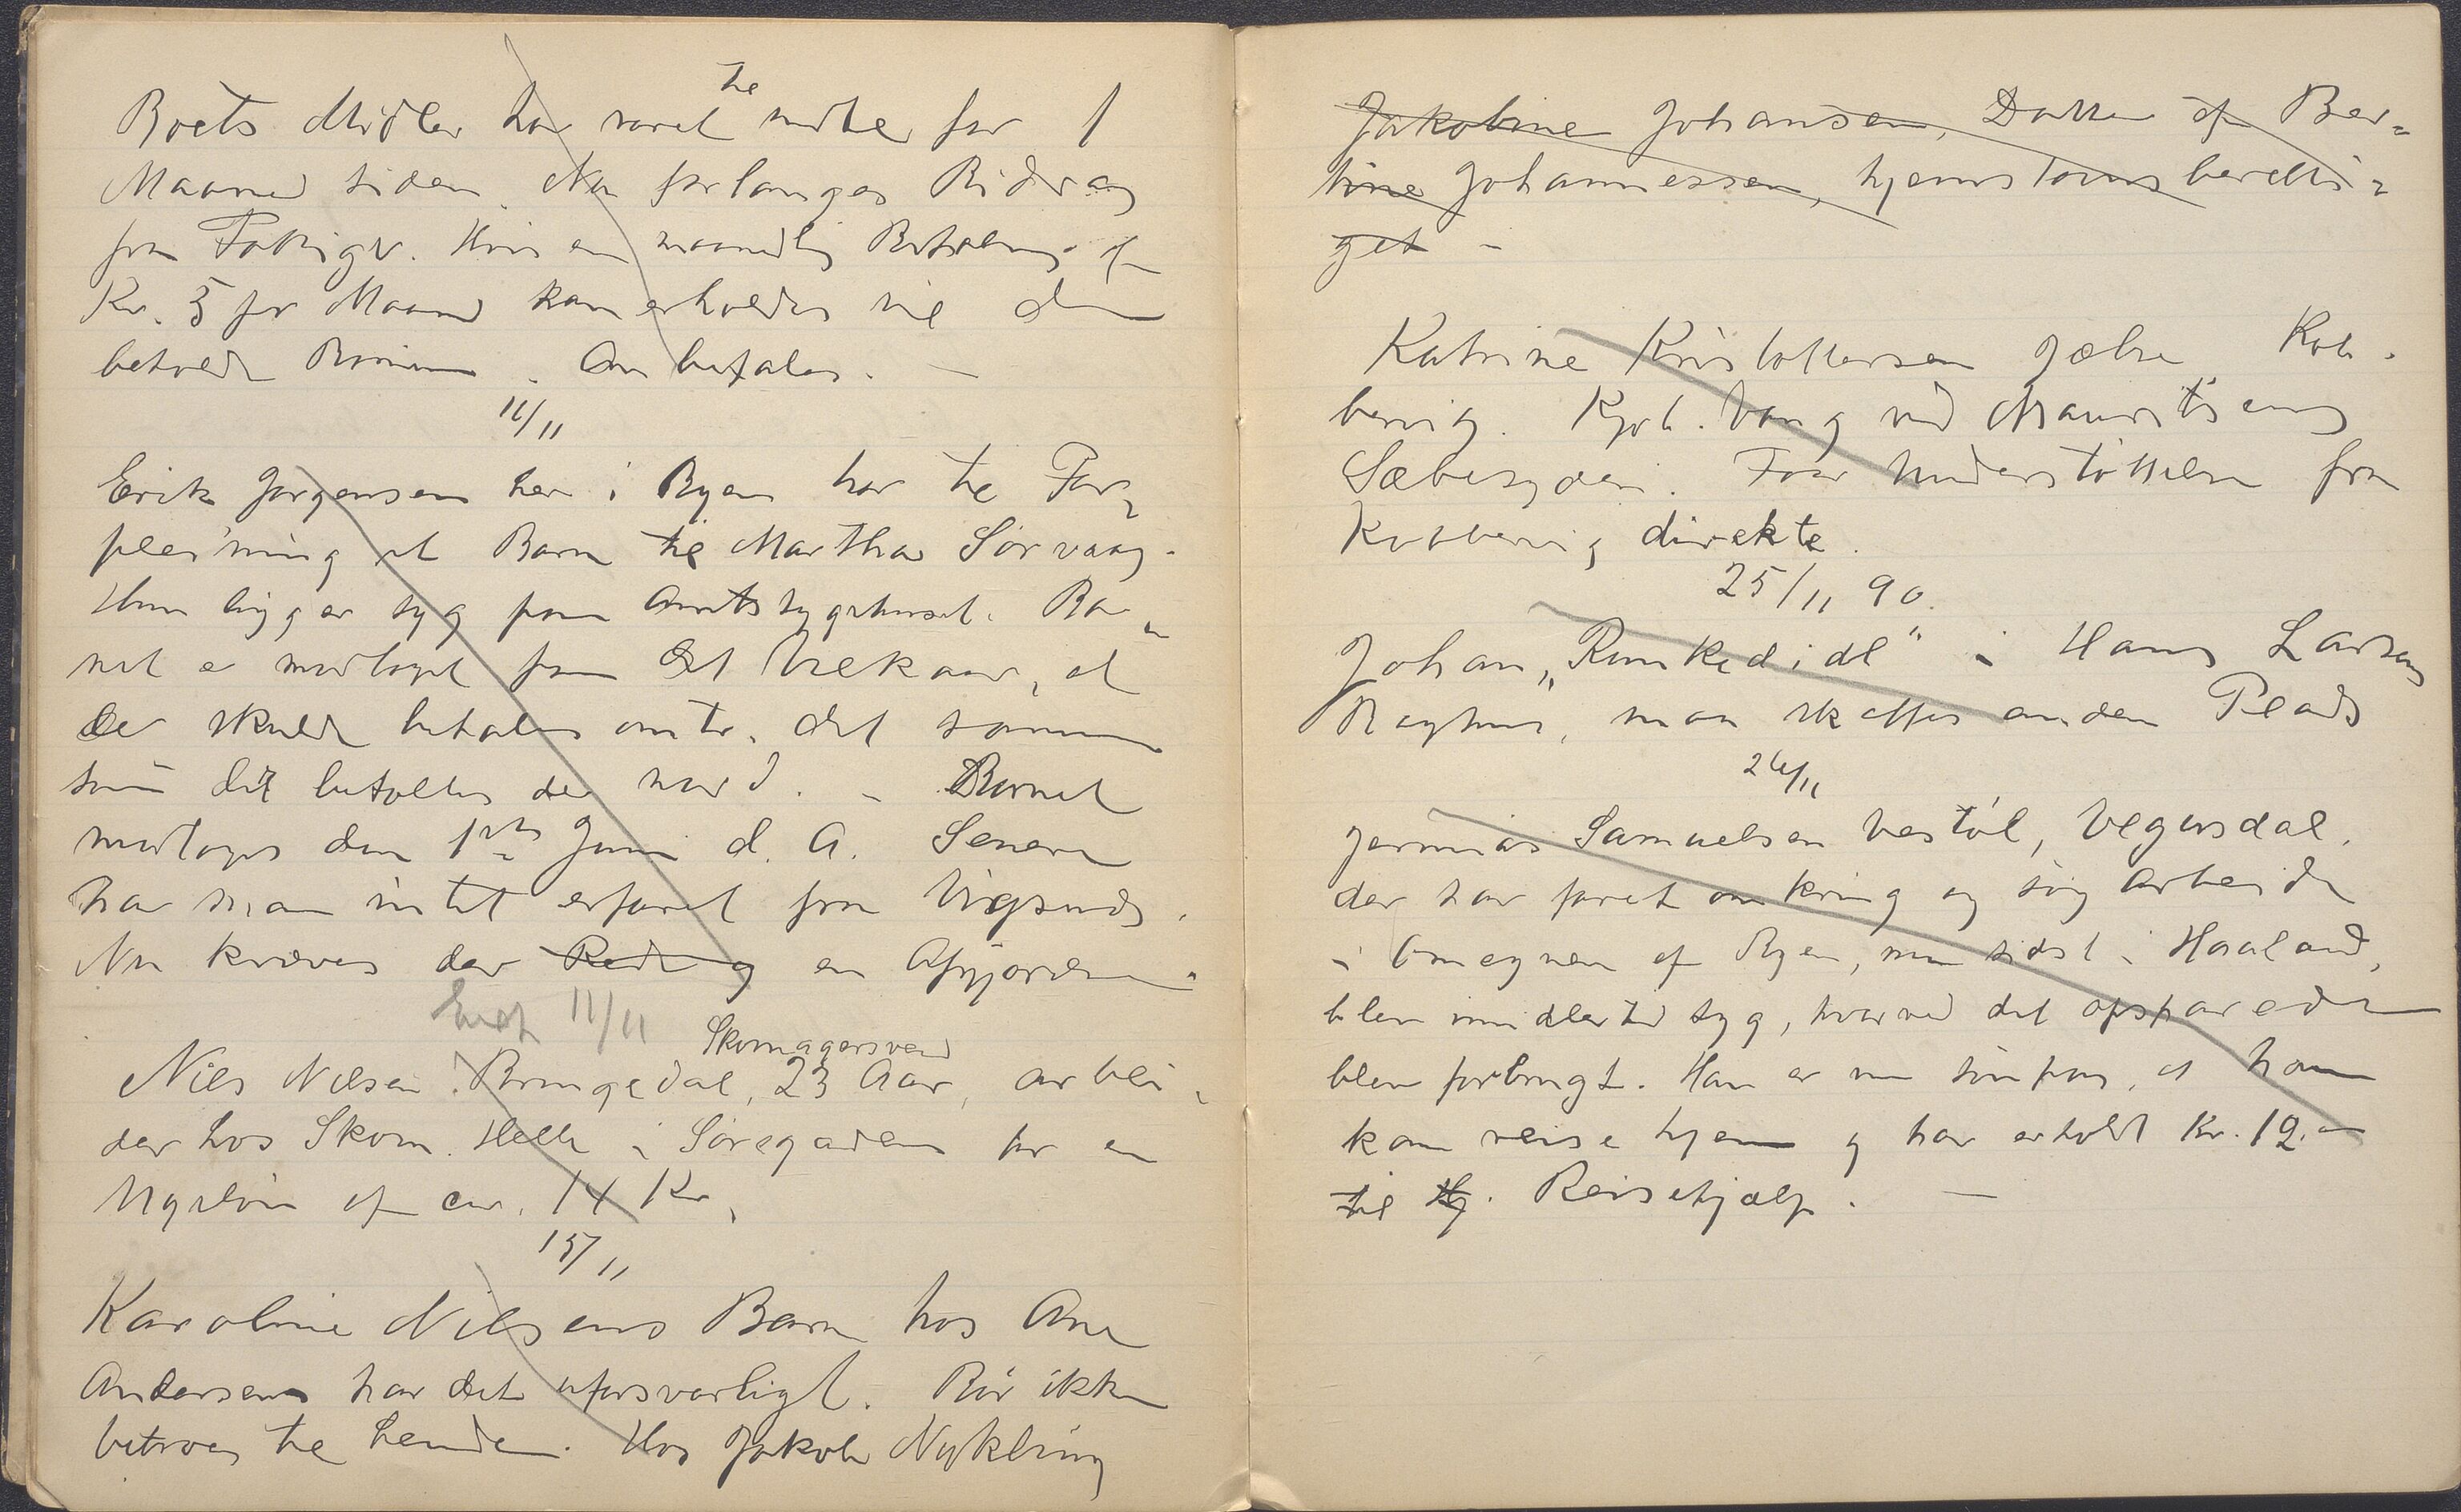 Boets Midler har været til
nede for 1
Maaned siden. Nu forlanges Bidrag
fra Fattigv. Hvis en maanedlig Betaling af
Kr. 5 pr Maaned kan erholdes vil den
beholde Konen. Anbefales. —
11/11
Erik Jørgensen her i Byen har til For-
pleining et Barn til Martha Sørvaag.
Hun ligger syg paa Amtssygehuset. Bar-
net er modtaget paa det Vilkaar, at
der skulde betales omtr. det samme
som det betaltes der nord. - Barnet
modtoges den 1ste Juni d. A. Senere
har man intet erfaret fra Vigsnds.
Nu kræves der Rede og en Afgjørelse.
Erik 11/11
Skomagersvend
Niels Nilsen Bringedal, 23 Aar, arbei-
der hos Skom. Helle i Søregaden for en
Ugeløn af ca. 14 Kr.
15/11
Karoline Nilsens Barn hos Ane
Andersen har det uforsvarligt. Bør ikke
betroes til hende. Hos Jakob Nykling
Jakobine Johansen, Datter af Ber-
tine Johannessen, hjemstavnsberetti-
get -
Katrine Kristoffersen Jælse Kob-
bervig. Kjøb. Vang ved Mauritzens
Sæbesyderi. Faar Understøttelse fra
Kobbervig direkte.
25/11 90.
Johan „Runkedidl" i Hans Larsens
Baghus, maa skaffes anden Plads
26/11
Jermias Samuelsen Vestøl, Vegusdal,
der har faret omkring og søg Arbeide
i Omegnen af Byen, nu sidst i Haaland,
blev imidlertid syg, hvorved det opsparede
blev forbrugt. Han er nu saa frisk, at han
kan reise hjem og har erholdt Kr. 12.-
til Hj. Reisehjælp. —